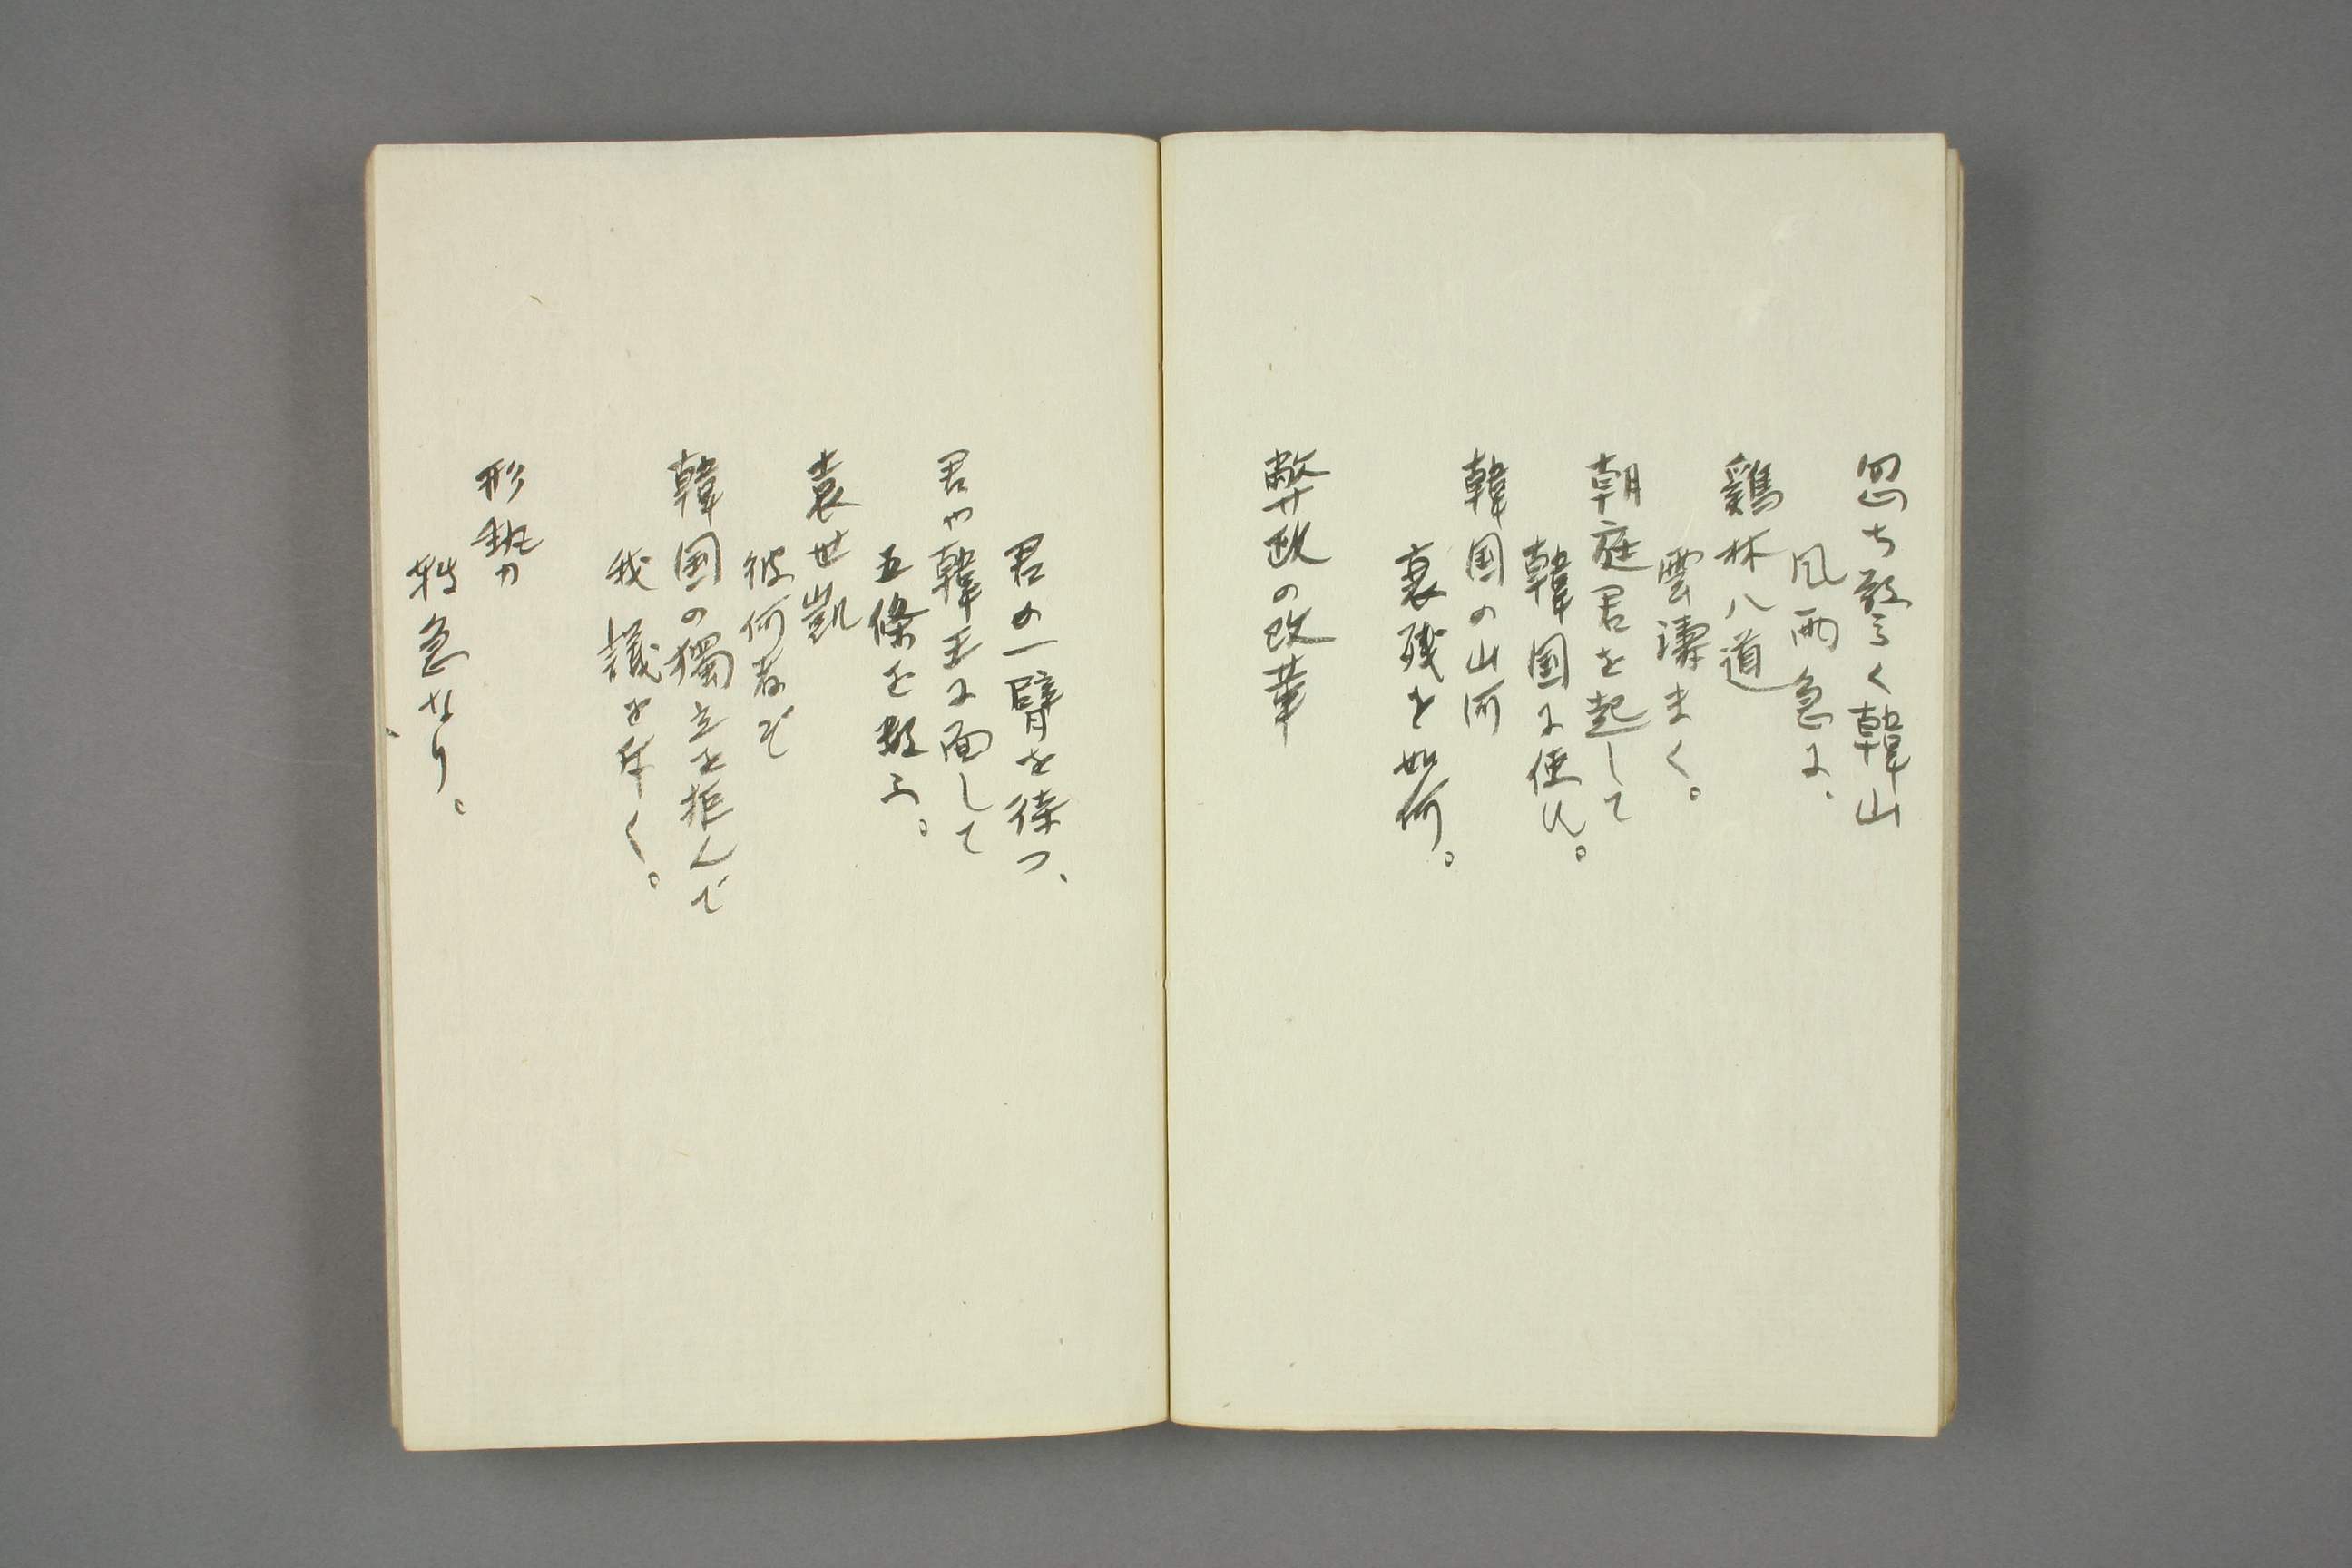 忽ち驚く韓山
風雨急に、
鶏林八道
雲濤まく。
朝庭君を起して
韓国に使ひ。
韓国の山河
衰残を如何。
弊政の改革
君の一臂を待つ、
君や韓王に面して
五條を数ふ。
袁世凱
彼何者ぞ
韓国の獨立を拒んで
我議を斥く。
形勢
転急なり。